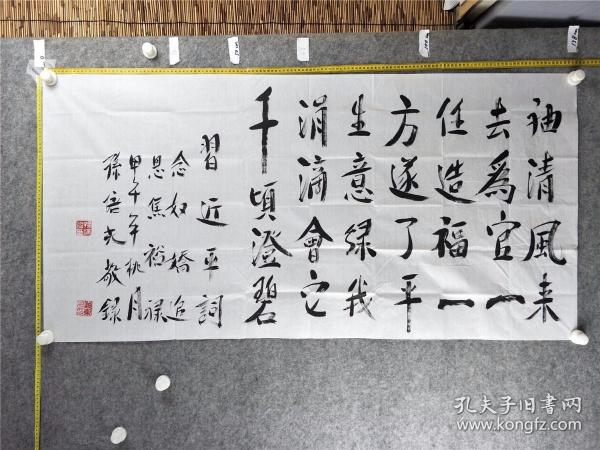 袖清風来
去為官一
任造福一
方遂了平
生意绿我
涓滴會它
千頃澄碧
習近平詞
念奴橋追
思焦裕禄
甲午年桃月
孫宏光敬録
孔夫子旧書网
www.kongfz.com